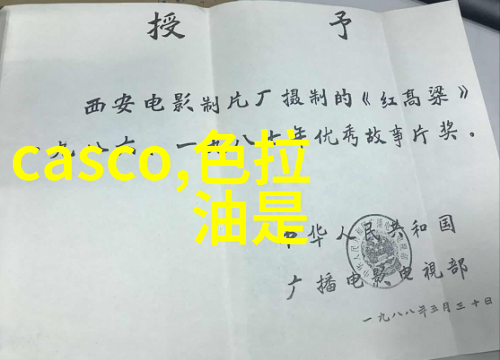 授予
西安电影制片厂摄制的《红高粱》
一九八六、一九八七年优秀故事片奖。
casco,色拉
油是
中华人民共和国
广播电影电视部
一九八八年三月三十日